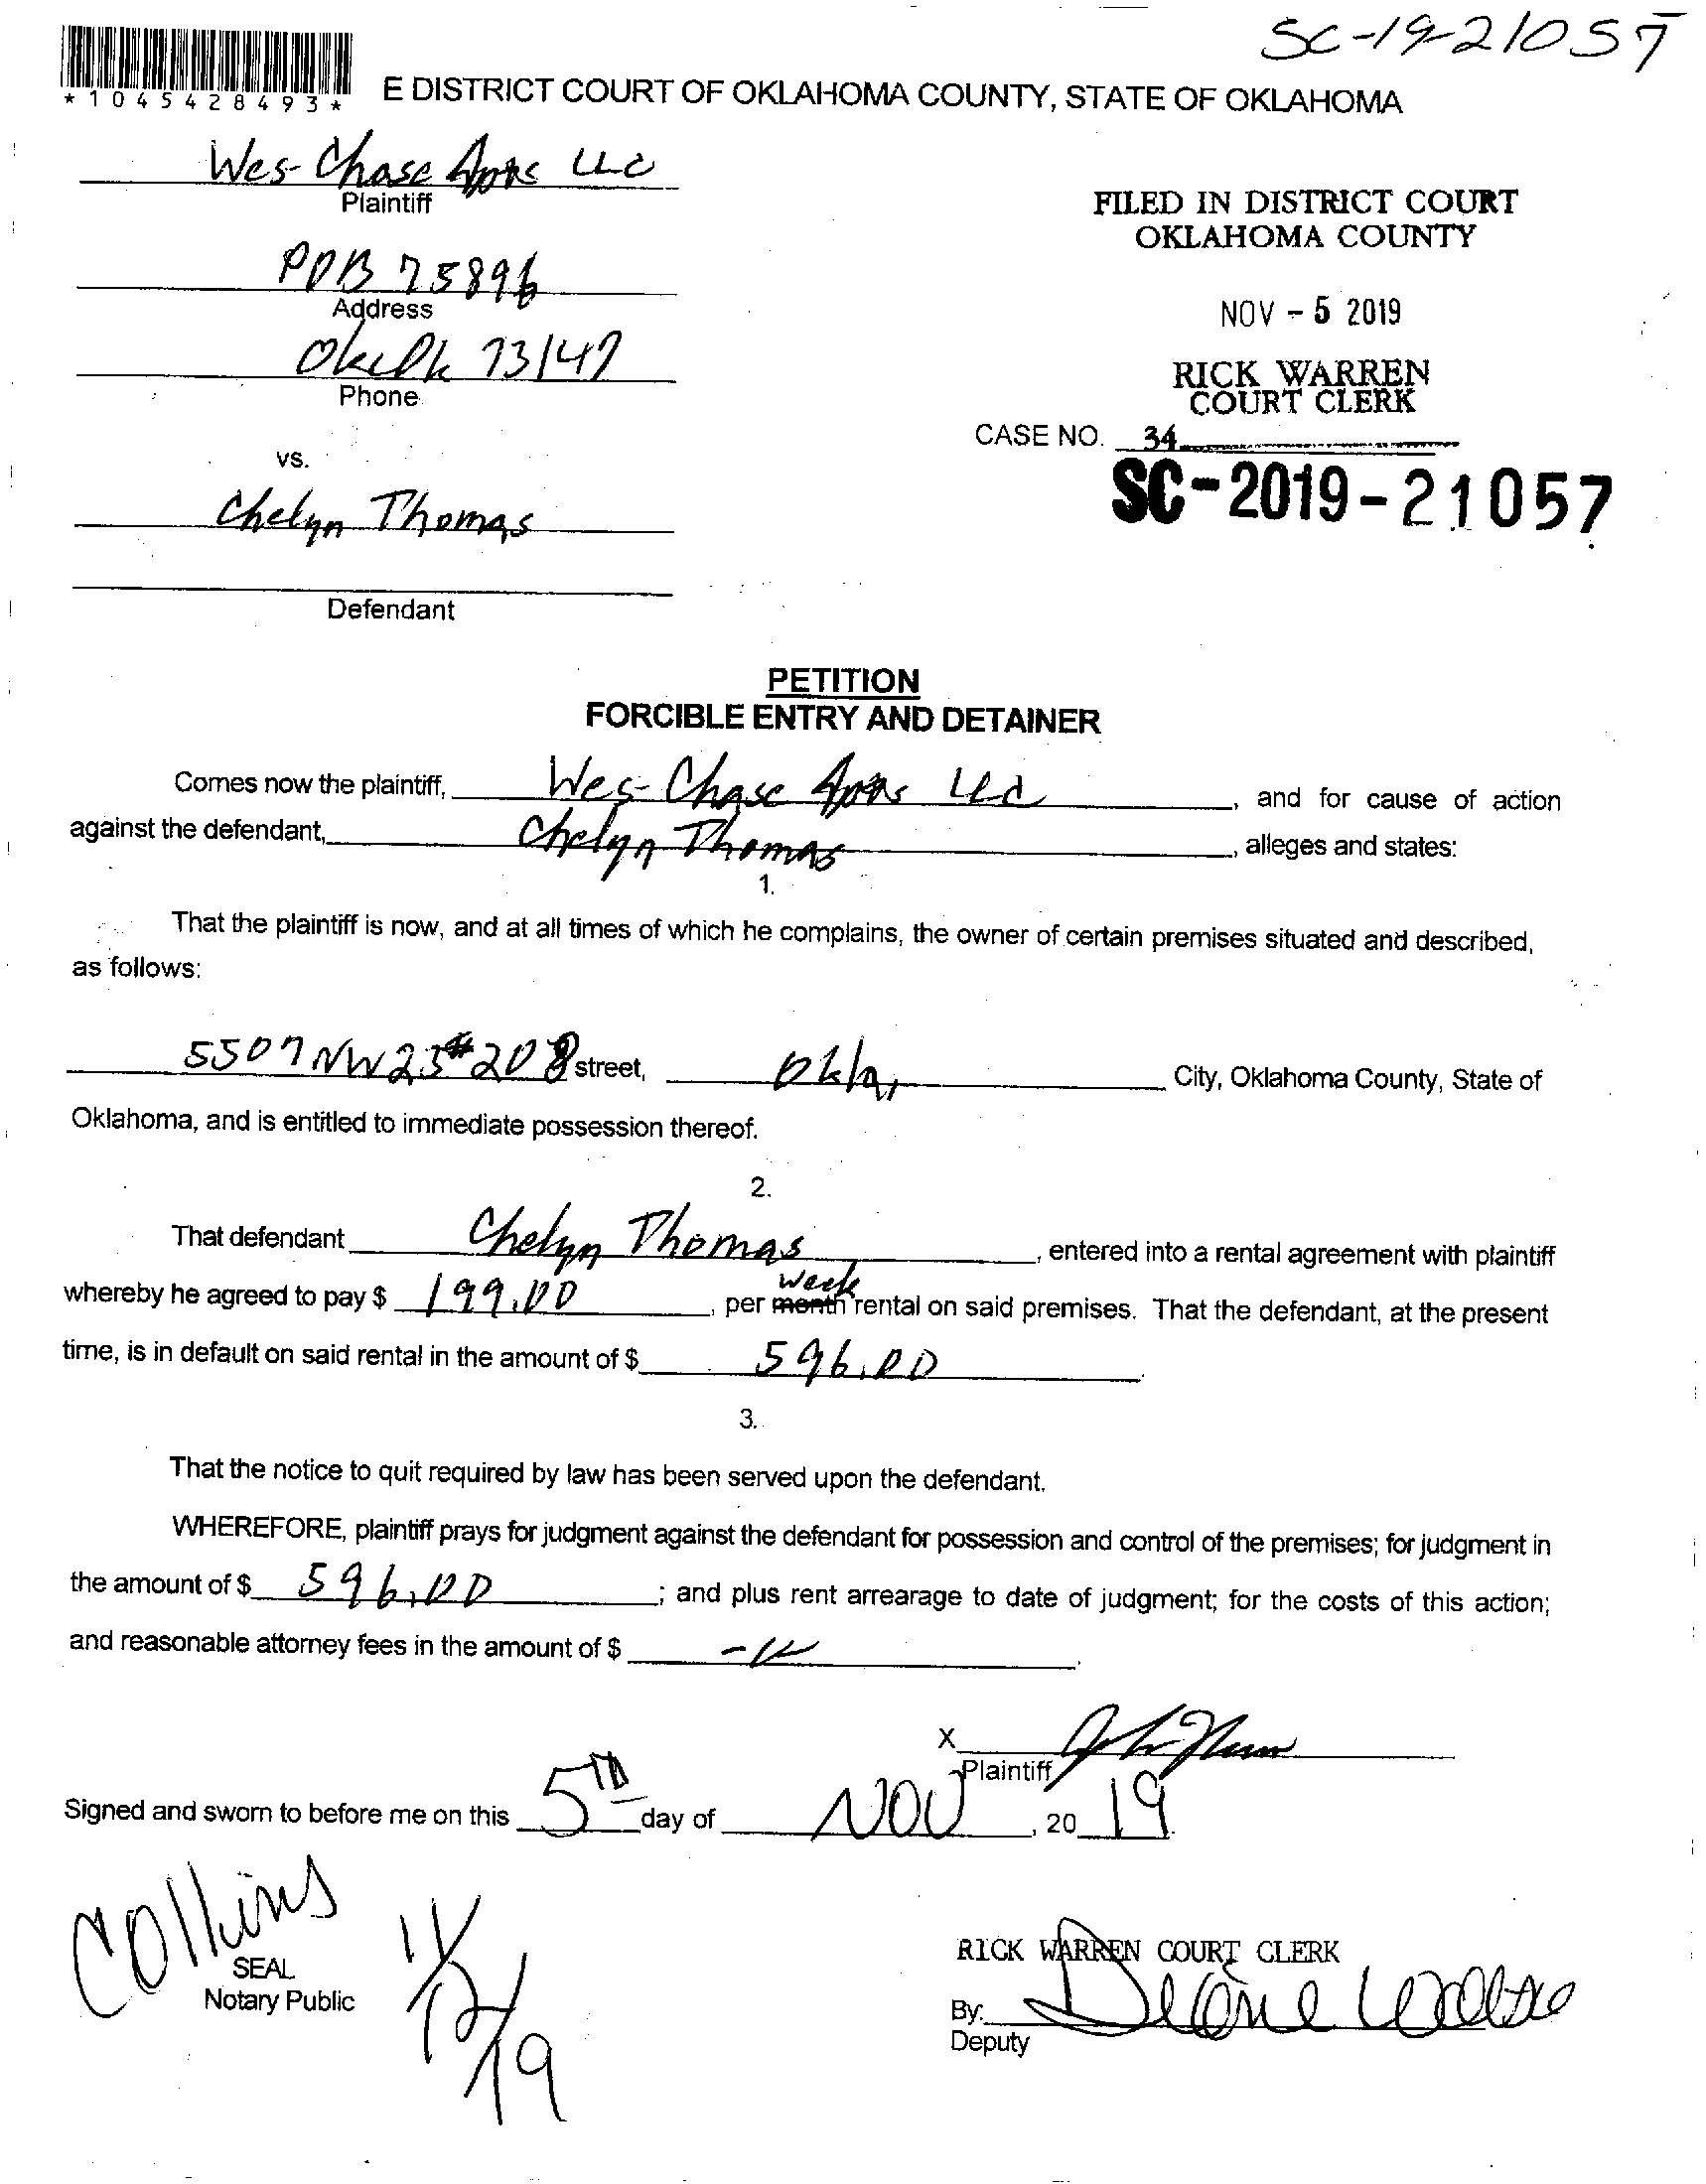 SC-19-21057
*1045428493*
E DISTRICT COURT OF OKLAHOMA COUNTY, STATE OF OKLAHOMA
Wes-Chase Apts LLC
Plaintiff
FILED IN DISTRICT COURT
OKLAHOMA COUNTY
POB 75896
Address
NOV - 5 2019
73147
Phone
RICK WARREN
COURT CLERK
CASE NO. 34
vs.
SC-2019-21057
Chelyn Thomas
Defendant
PETITION
FORCIBLE ENTRY AND DETAINER
Comes now the plaintiff, Wes-Chase Apts, and for cause of action
against the defendant, Chelyn Thomas, alleges and states:
1.
That the plaintiff is now, and at all times of which he complains, the owner of certain premises situated and described,
as follows:
5507 NW 23 # 208 street, Okla, City, Oklahoma County, State of
Oklahoma, and is entitled to immediate possession thereof.
2.
That defendant Chelyn Thomas, entered into a rental agreement with plaintiff
week
whereby he agreed to pay $ 199.00, per month rental on said premises. That the defendant, at the present
time, is in default on said rental in the amount of $ 596.00.
3.
That the notice to quit required by law has been served upon the defendant.
WHEREFORE, plaintiff prays for judgment against the defendant for possession and control of the premises; for judgment in
the amount of $ 596.00; and plus rent arrearage to date of judgment; for the costs of this action;
and reasonable attorney fees in the amount of $
X
Plaintiff
Signed and sworn to before me on this 5TH day of NOV, 20 19.
Collins
11/12/19
SEAL
Notary Public
RICK WARREN COURT CLERK
By:
Deputy